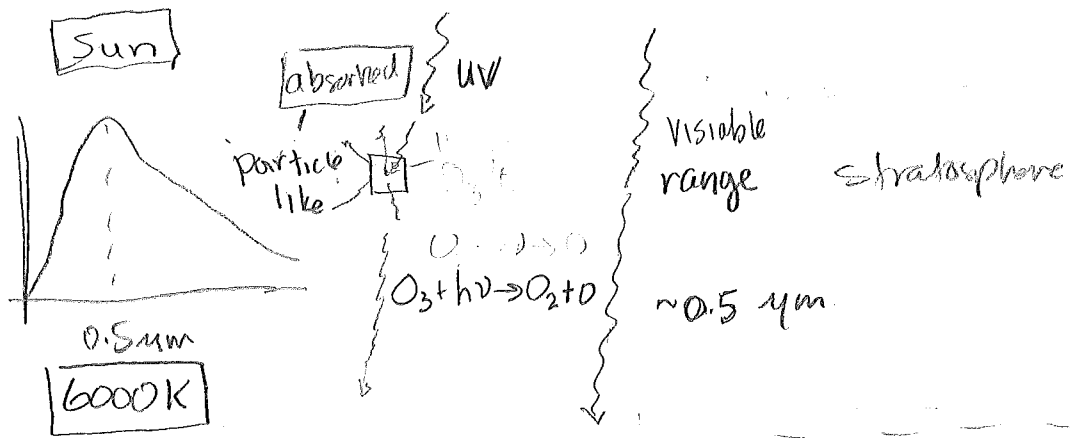 Sun
absorbed
UV
"particle"
like
visiable
range
stratosphere
O₃+hν→O₂+O
~0.5 μm
0.5μm
6000K